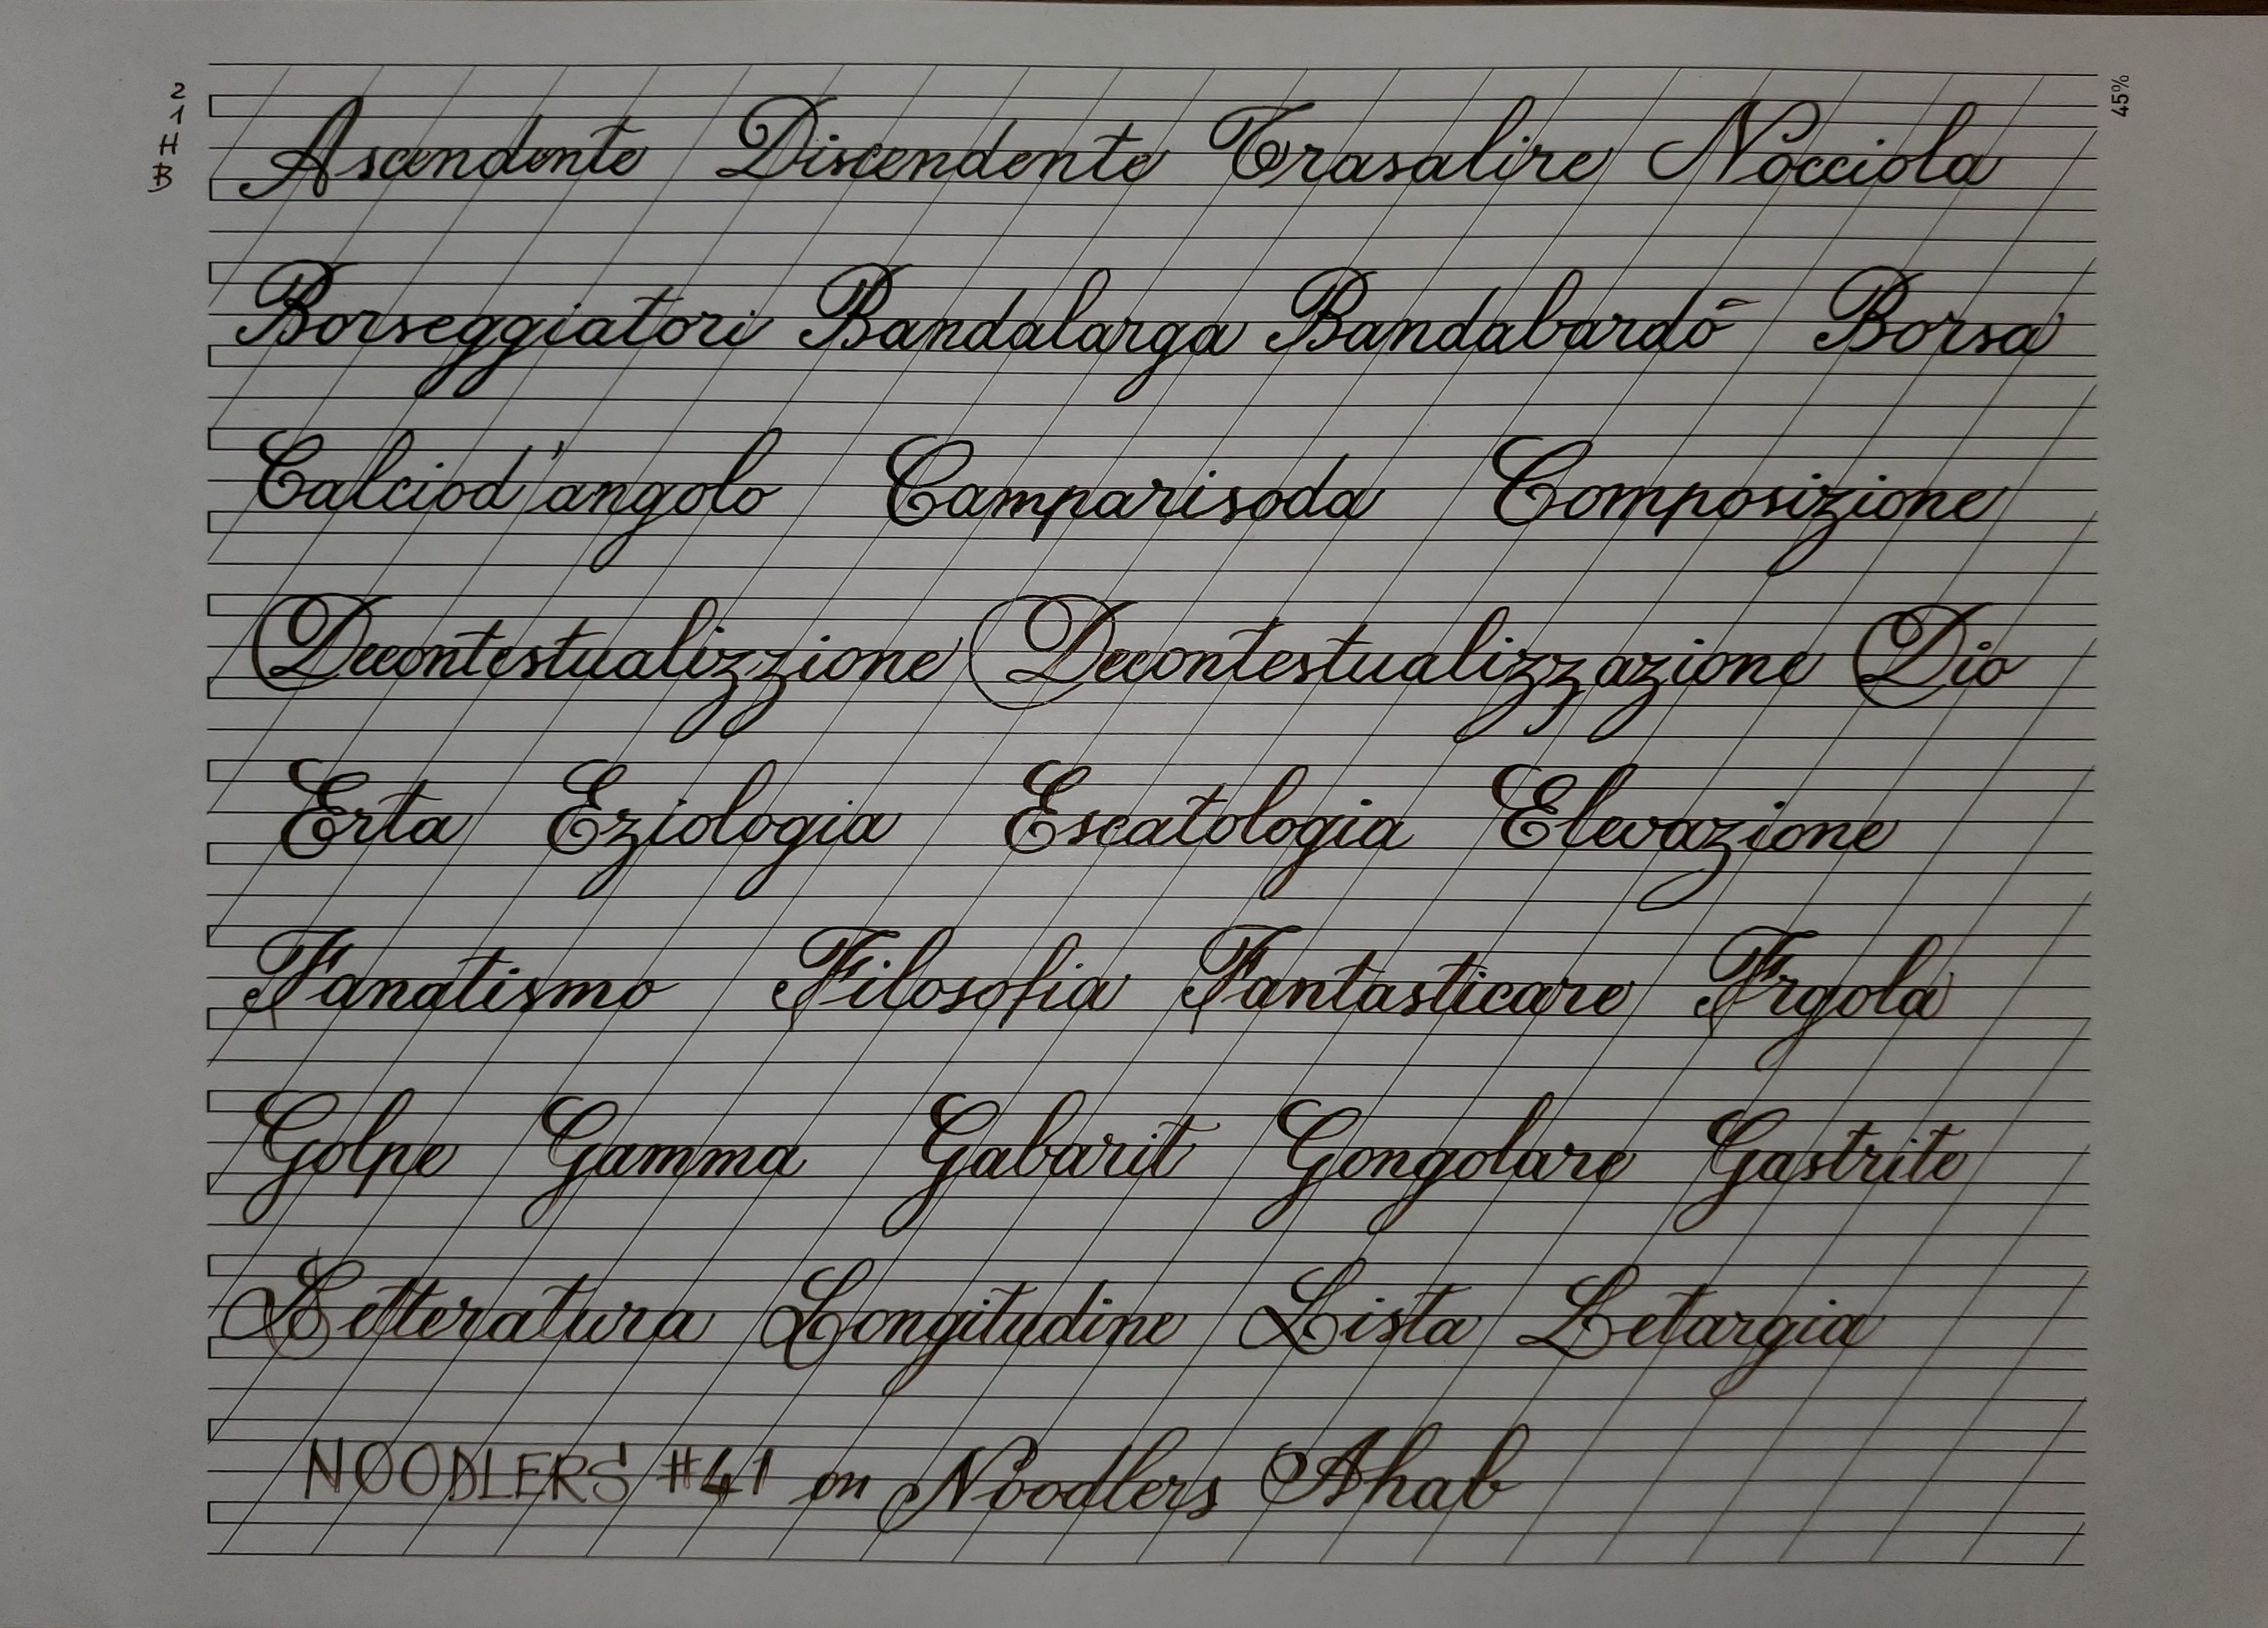 2
1
H
B
45%
Ascendente Discendente Trasalire Nocciola
Borseggiatori Bandalarga Bandabardò Borsa
Calciod'angolo Camparisoda Composizione
Decontestualizzione Decontestualizzazione Dio
Erta Eziologia Escatologia Elevazione
Fanatismo Filosofia Fantasticare Frgola
Golpe Gamma Gabarit Gongolare Gastrite
Letteratura Longitudine Lista Letargia
NOODLERS #41 on Noodlers Ahab